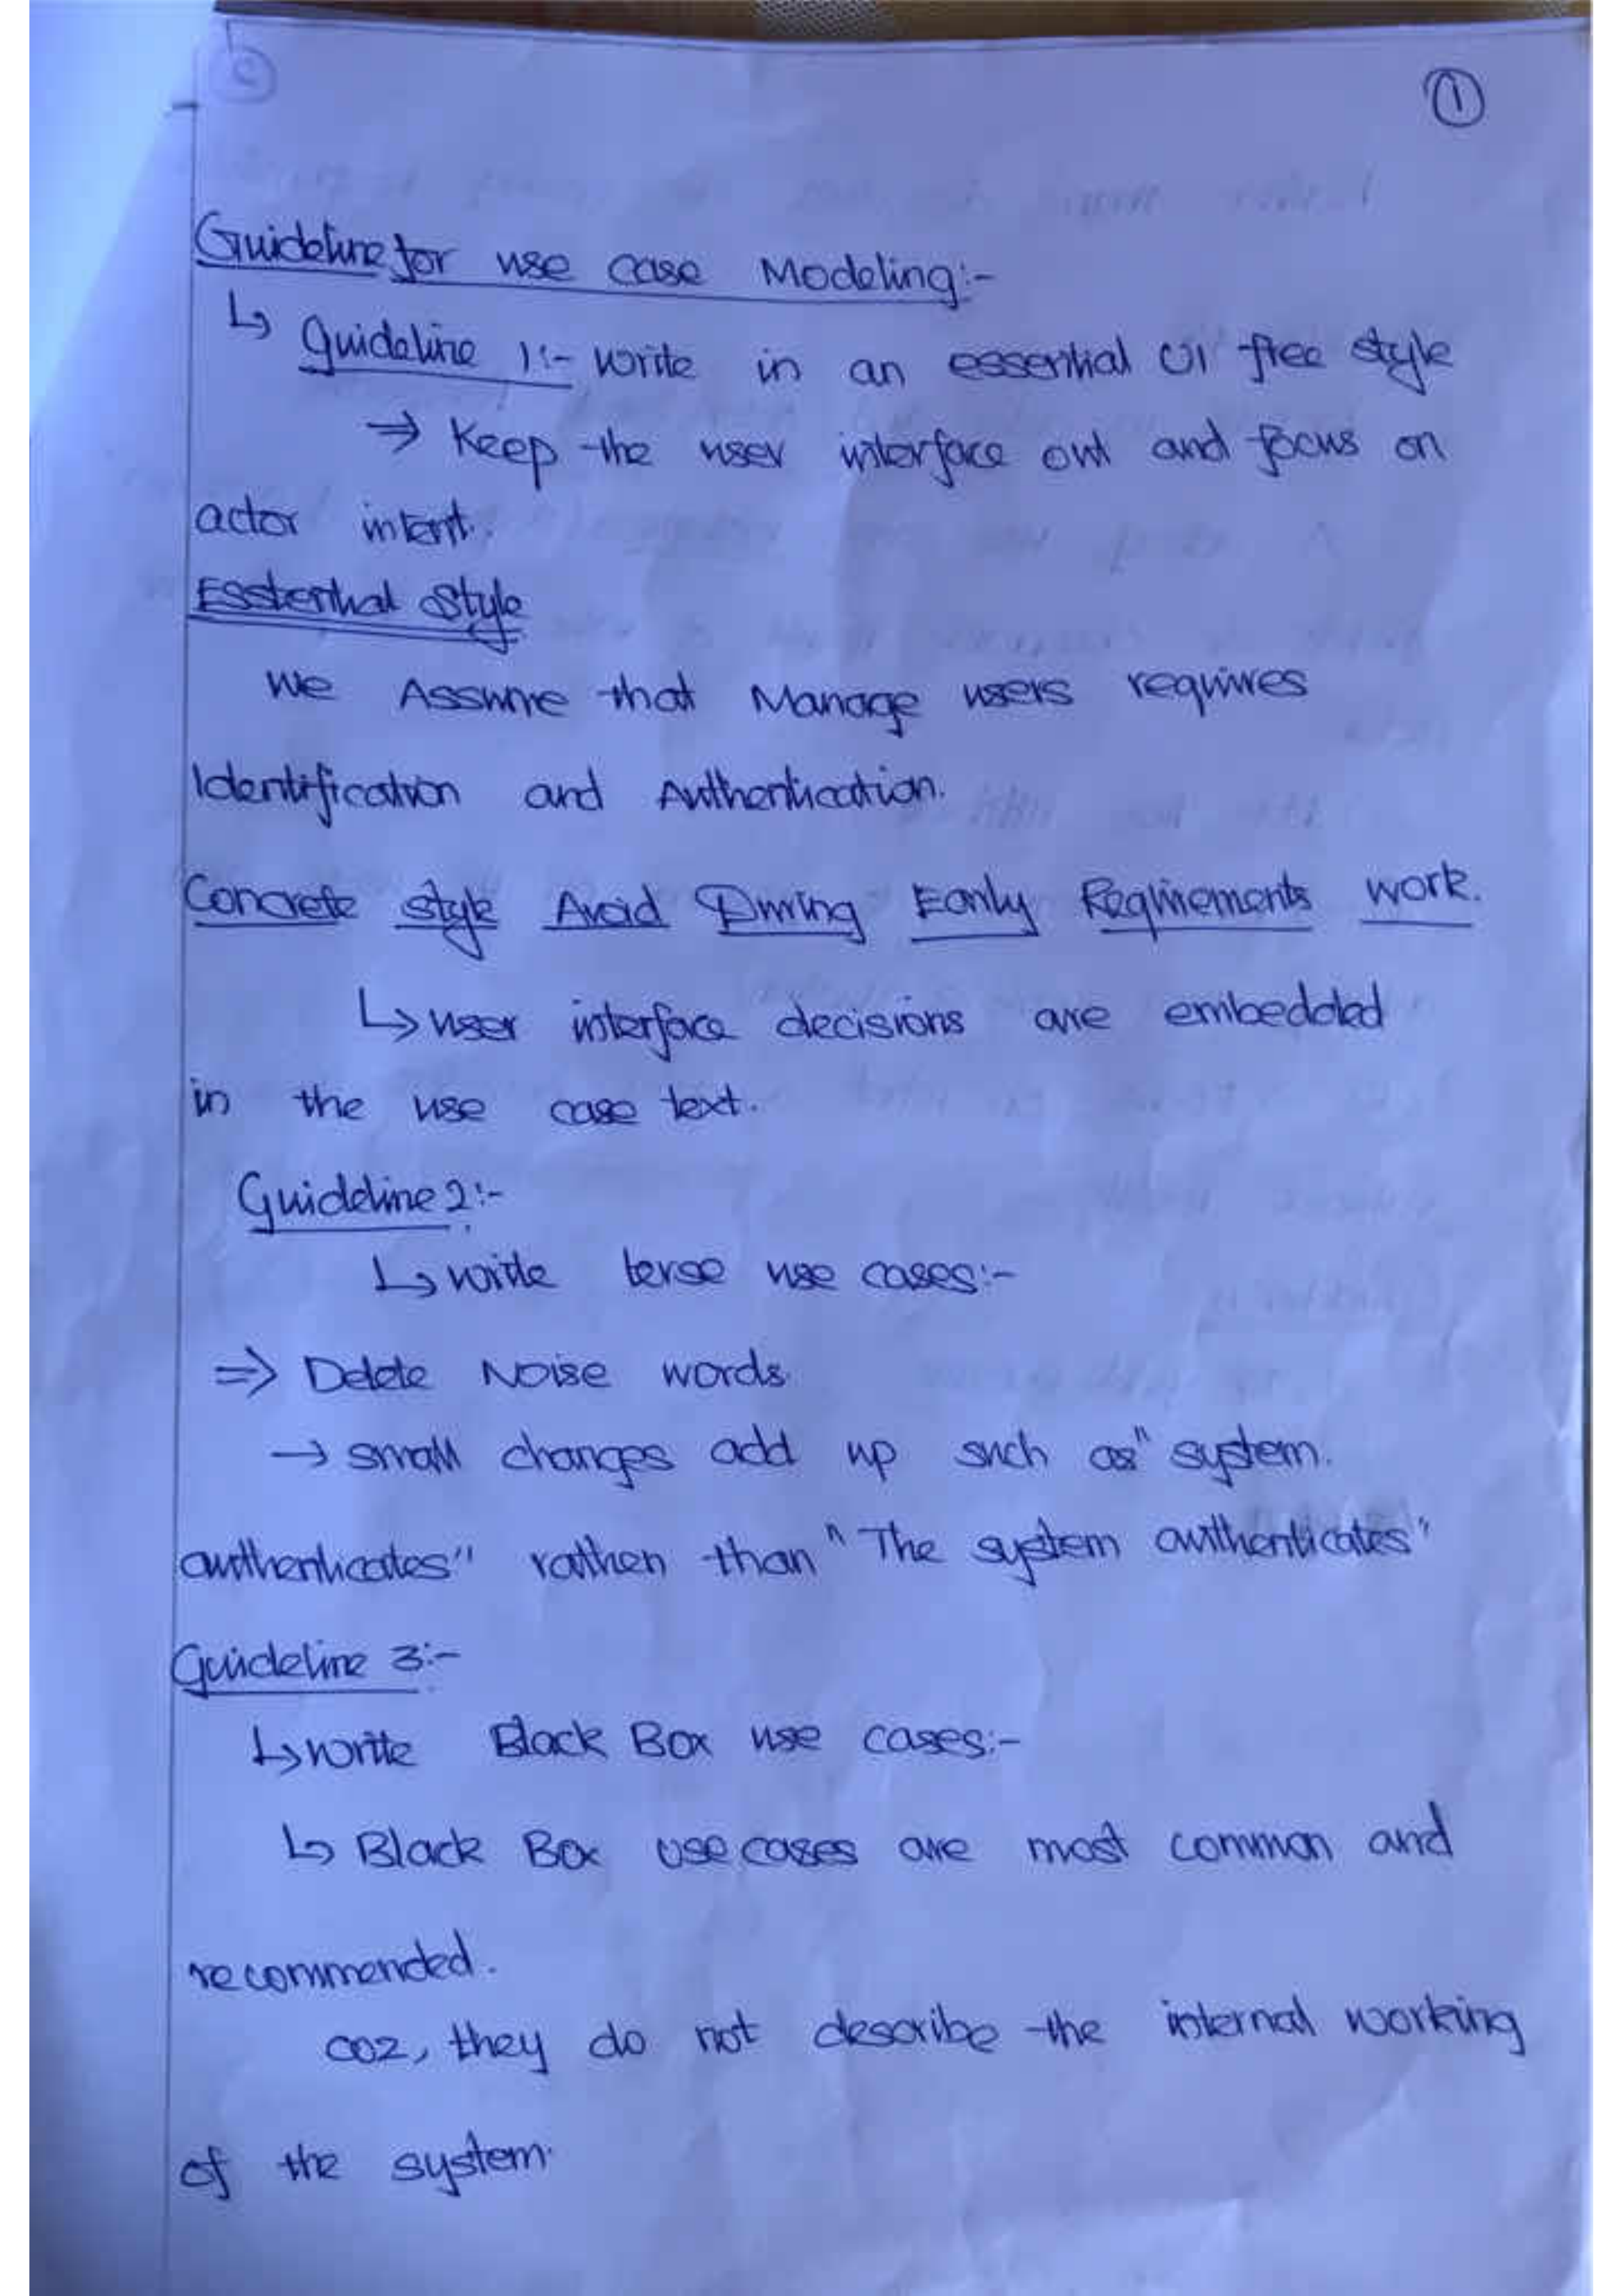 ①
Guideline for use case Modeling:-
↳ Guideline 1:- write in an essential UI free style
⇒ Keep the user interface out and focus on
actor intent.
Esstential Style
We Assume that Manage users requires
Identification and Authentication.
Concrete style Avoid During Early Requirements work.
↳ user interface decisions are embedded
in the use case text.
Guideline 2:-
↳ write terse use cases:-
⇒ Delete Noise words.
→ small changes add up such as "system.
authenticates" rather than "The system authenticates"
Guideline 3:-
↳ write Black Box use cases:-
↳ Black Box use cases are most common and
recommended.
coz, they do not describe the internal working
of the system.